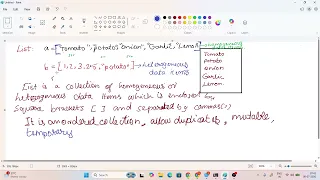 List: a = ["Tomato", "potato", "onion", "Garlic", "Lemon"]
Tomato
Potato
onion
Garlic
Lemon
b = [1, 2, 3.2+5, "potatoes"] → heterogeneous
data items
List is a collection of homogeneous or
heterogeneous data items which is enclosed by
square brackets [ ] and separated by commas(,)
It is an ordered collection, allow duplicates, mutable,
temporary